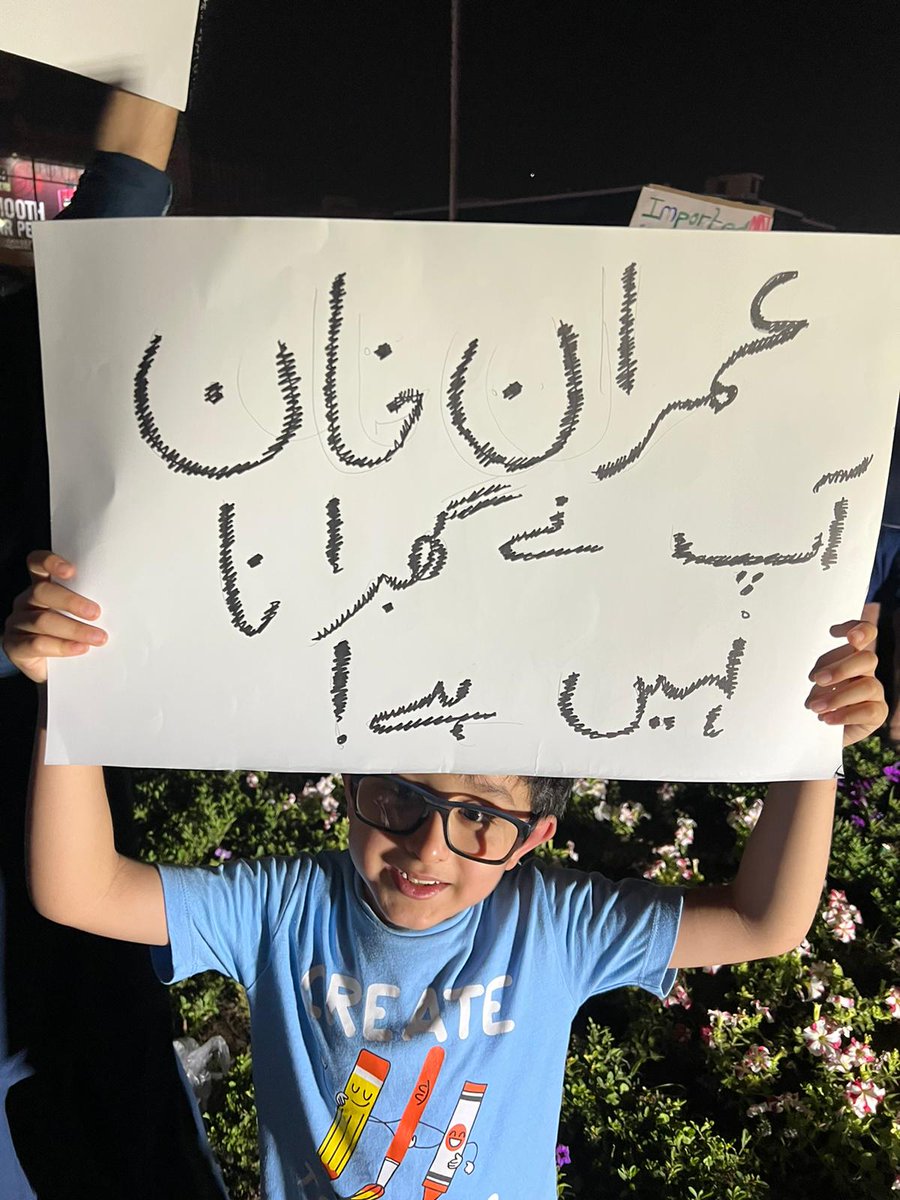 Imported
عمران خان
آپ نے گھبرانا
نہیں ہے!
CREATE